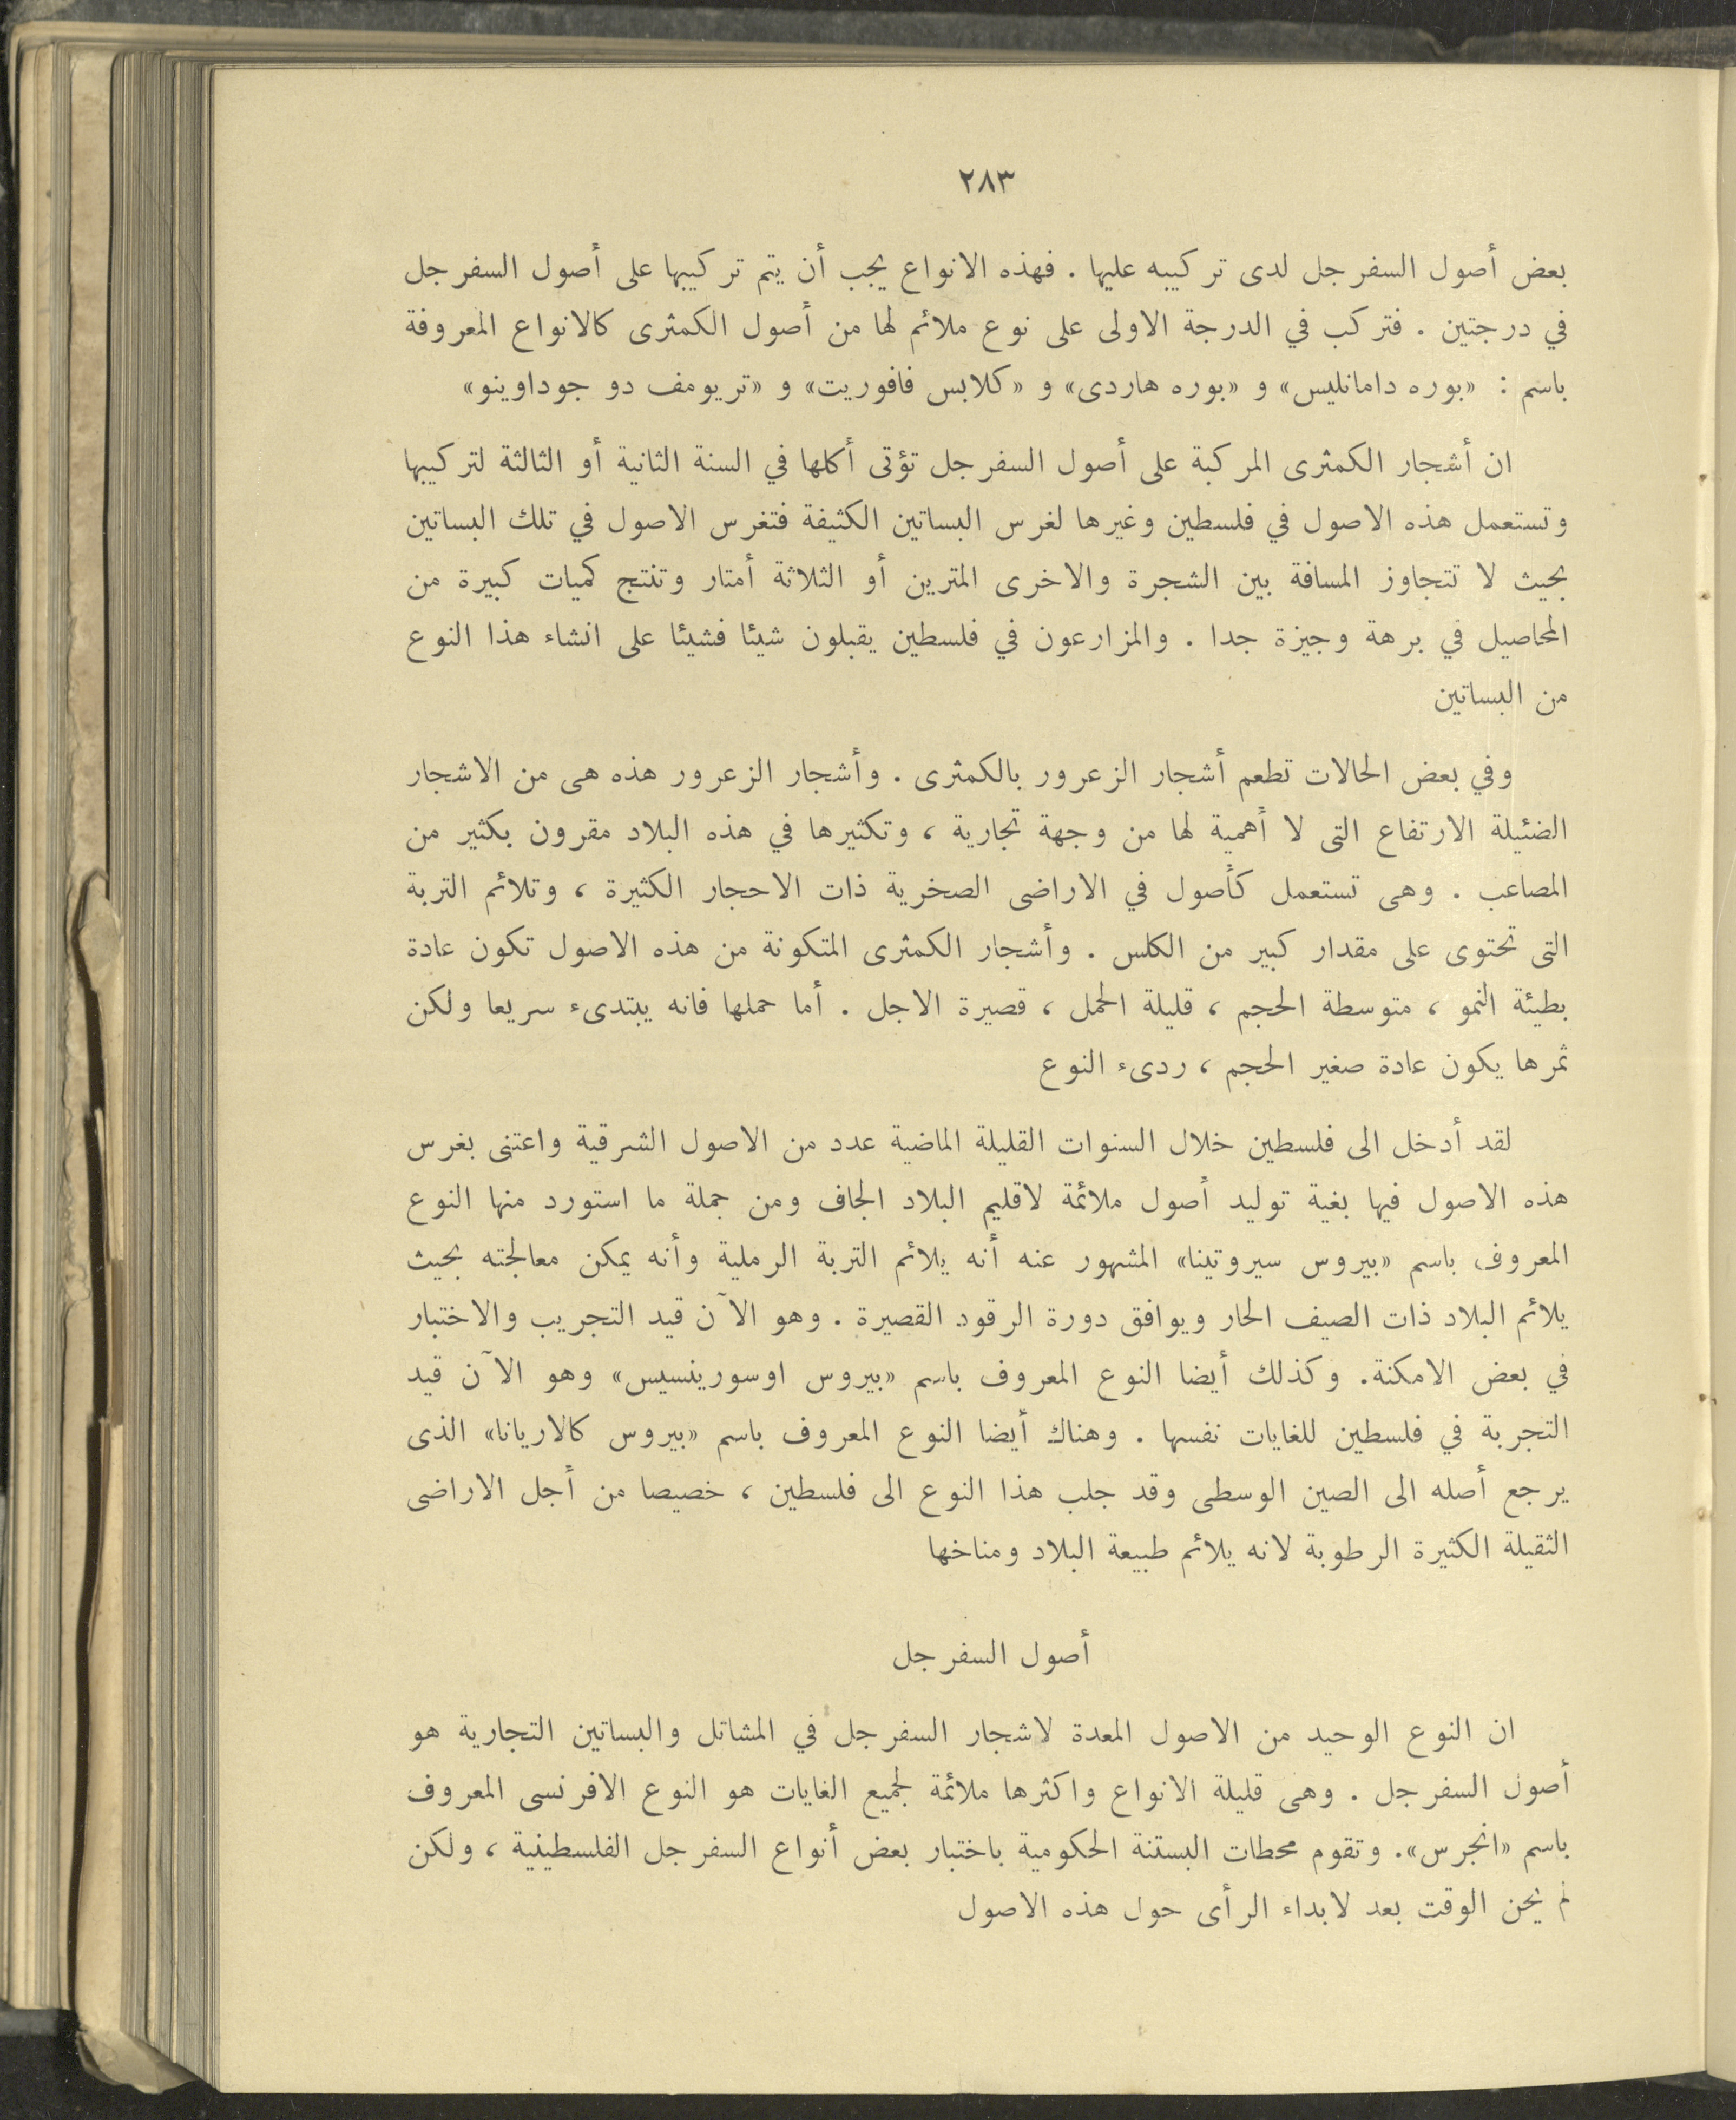 ٢٨٣
بعض أصول السفرجل لدى تركيبه عليها . فهذه الانواع يجب أن يتم تركيبها على أصول السفرجل
في درجتين . فتركب في الدرجة الاولى على نوع ملائم لها من أصول الكمثرى كالانواع المعروفة
باسم : «بوره دامانليس» و «بوره هاردى» و «كلابس فافوريت» و «تريومف دو جوداوينو»
ان أشجار الكمثرى المركبة على أصول السفرجل تؤتى أكلها في السنة الثانية أو الثالثة لتركيبها
وتستعمل هذه الاصول في فلسطين وغيرها لغرس البساتين الكثيفة فتغرس الاصول في تلك البساتين
بحيث لا تتجاوز المسافة بين الشجرة والاخرى المترين أو الثلاثة أمتار وتنتج كميات كبيرة من
المحاصيل في برهة وجيزة جدا . والمزارعون في فلسطين يقبلون شيئا فشيئا على انشاء هذا النوع
من البساتين
وفي بعض الحالات تطعم أشجار الزعرور بالكمثرى . وأشجار الزعرور هذه هى من الاشجار
الضئيلة الارتفاع التى لا أهمية لها من وجهة تجارية ، وتكثيرها في هذه البلاد مقرون بكثير من
المصاعب . وهى تستعمل كأصول في الاراضى الصخرية ذات الاحجار الكثيرة ، وتلائم التربة
التى تحتوى على مقدار كبير من الكلس . وأشجار الكمثرى المتكونة من هذه الاصول تكون عادة
بطيئة النمو ، متوسطة الحجم ، قليلة الحمل ، قصيرة الاجل . أما حملها فانه يبتدىء سريعا ولكن
ثمرها يكون عادة صغير الحجم ، ردىء النوع
لقد أدخل الى فلسطين خلال السنوات القليلة الماضية عدد من الاصول الشرقية واعتنى بغرس
هذه الاصول فيها بغية توليد أصول ملائمة لاقليم البلاد الجاف ومن جملة ما استورد منها النوع
المعروف باسم «بيروس سيروتينا» المشهور عنه أنه يلائم التربة الرملية وأنه يمكن معالجته بحيث
يلائم البلاد ذات الصيف الحار ويوافق دورة الرقود القصيرة . وهو الآن قيد التجريب والاختبار
في بعض الامكنة. وكذلك أيضا النوع المعروف باسم «بيروس اوسورينسيس» وهو الآن قيد
التجربة في فلسطين للغايات نفسها . وهناك أيضا النوع المعروف باسم «بيروس كالاريانا» الذى
يرجع أصله الى الصين الوسطى وقد جلب هذا النوع الى فلسطين ، خصيصا من أجل الاراضى
الثقيلة الكثيرة الرطوبة لانه يلائم طبيعة البلاد ومناخها
أصول السفرجل
ان النوع الوحيد من الاصول المعدة لاشجار السفرجل في المشاتل والبساتين التجارية هو
أصول السفرجل . وهى قليلة الانواع واكثرها ملائمة لجميع الغايات هو النوع الافرنسى المعروف
باسم «انجرس». وتقوم محطات البستنة الحكومية باختبار بعض أنواع السفرجل الفلسطينية ، ولكن
لم يحن الوقت بعد لابداء الرأى حول هذه الاصول